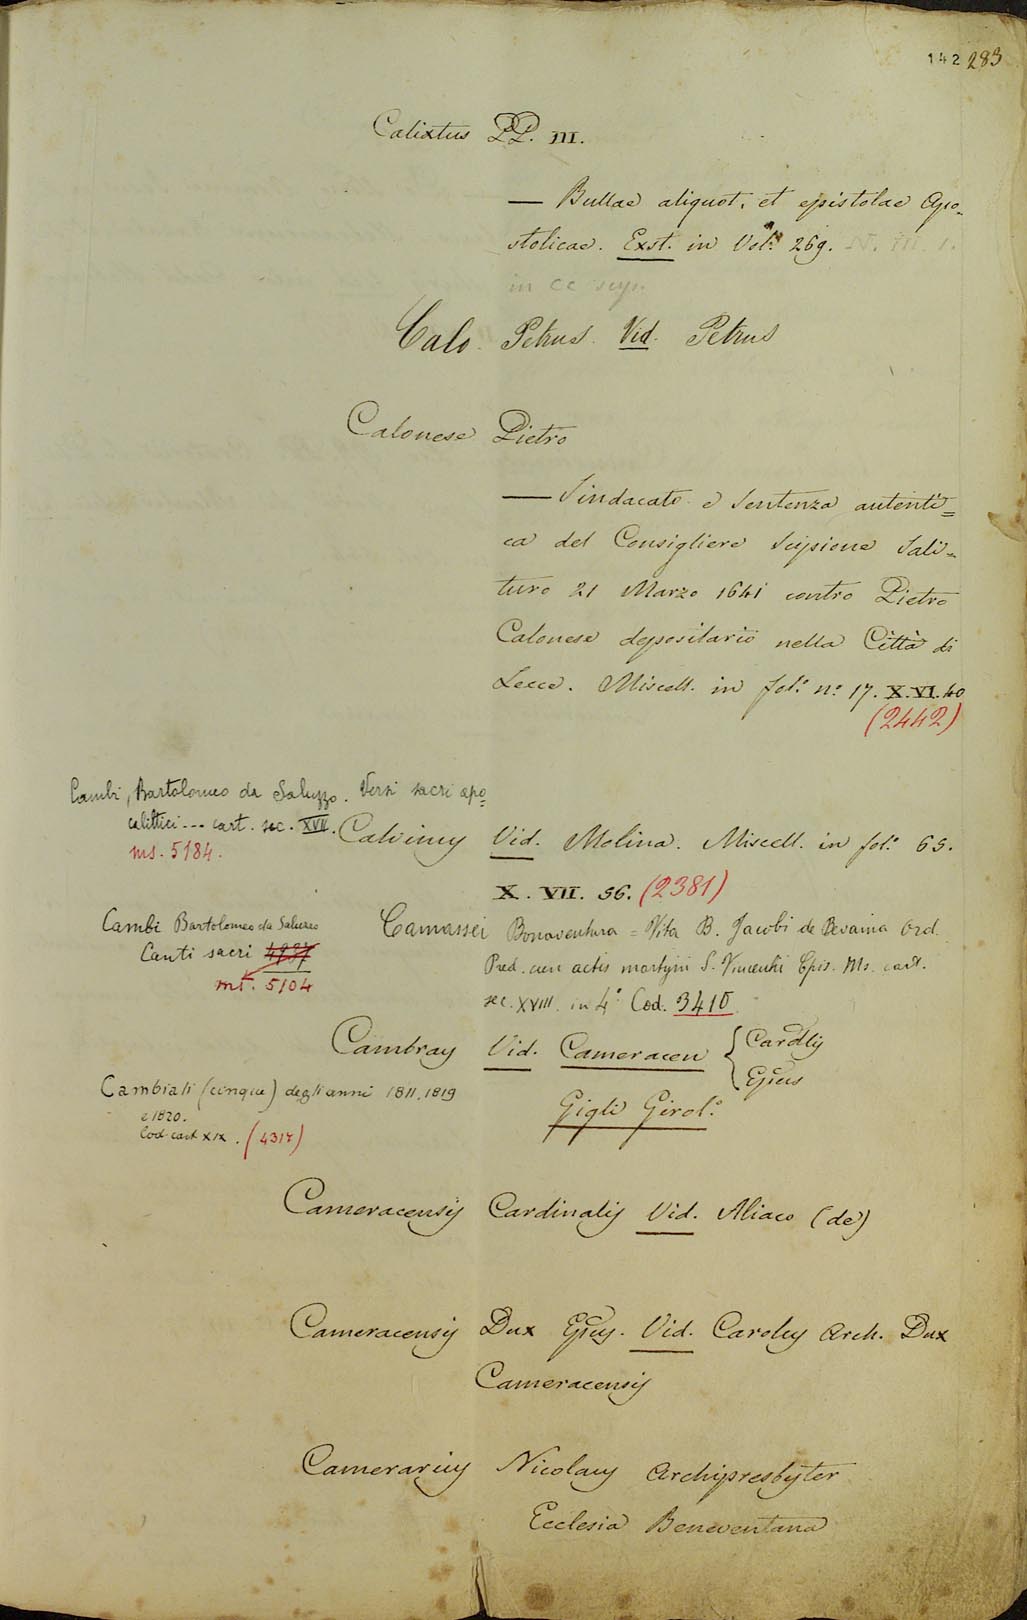 142 283
Calixtus PP. III.
— Bullae aliquot, et epistolae Apo-
stolicae. Exst. in Vol.º 269. IV. III. 1.
in CC sup.
Calo Petrus. Vid. Petrus
Calonese Pietro
— Sindacato e Sentenza autenti=
ca del Consigliere Scipione Sali-
turo 21 Marzo 1641 contro Pietro
Calonese depositario nella Città di
Lecce. Miscell. in fol.º nº 17. X. VI. 40
(2442)
Cambi, Bartolomeo da Saluzzo. Versi sacri apo=
calittici --- cart. sec. XVII.
ms. 5184.
Calvinus Vid. Molina. Miscell. in fol.º 65.
X. VII. 56. (2381)
Cambi Bartolomeo da Saluzzo
Canti sacri
ms. 5104
Camassei Bonaventura = Vita B. Jacobi de Bevania Ord.
Pred. cum actis martyrii S. Vincentii Epis. Ms. cart.
sec. XVIII. in 4º Cod. 3410
Cambray Vid. Cameracen { Cardlis
Epus
Gigli Girol.º
Cambiali (cinque) degli anni 1811. 1819
e 1820.
Cod cart XIX. (4317)
Cameracensis Cardinalis Vid. Aliaco (de)
Cameracensis Dux Epus. Vid. Carolus Arch. Dux
Cameracensis
Camerarius Nicolaus Archipresbyter
Ecclesia Beneventana